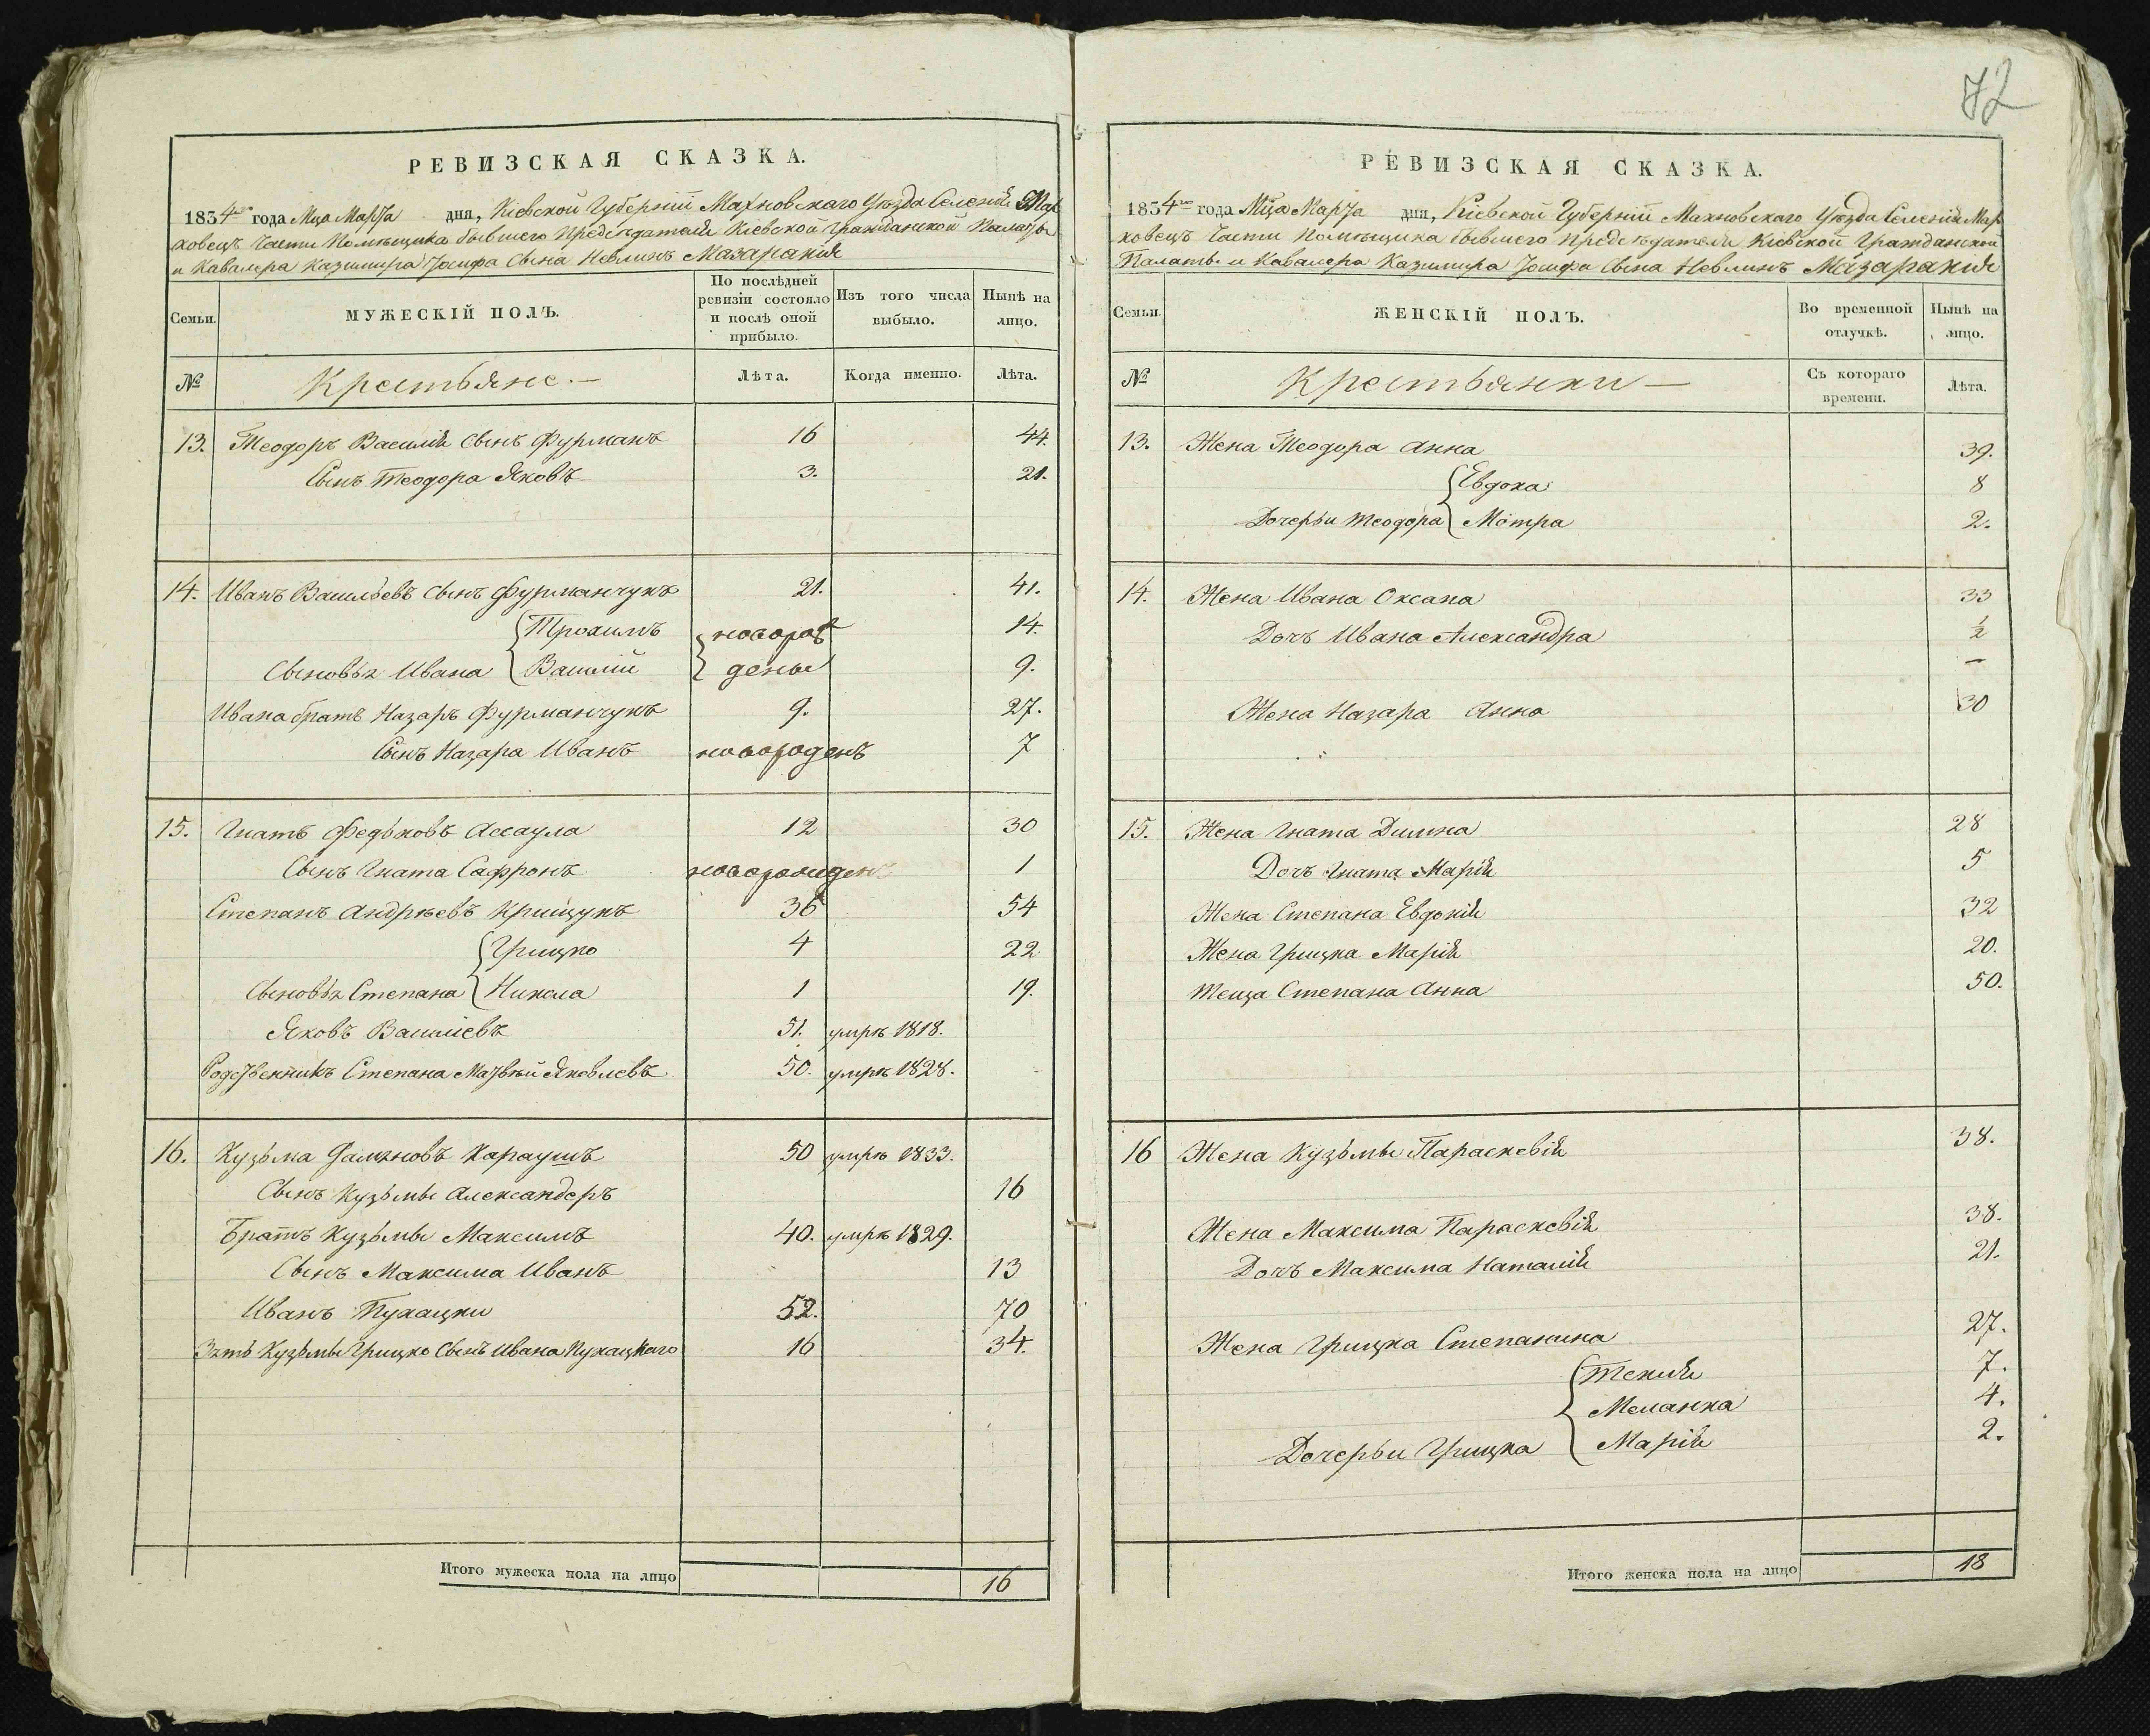 РЕВИЗСКАЯ СКАЗКА.
1834го года Мца Марта дня, Кіевской Губерніи Махновскаго Уѣзда Селенія Мар
ковецъ Части Помѣщика бывшего Предсѣдателя Кіевской Гражданской Палаты
и Кавалера Казимира Іосифа Сына Мазаракія
Семьи.
МУЖЕСКІЙ ПОЛЪ.
По послѣдней ревизіи состояло и послѣ оной прибыло.
Изъ того числа выбыло.
Нынѣ на лицо.
№
Крестьяне.—
Лѣта.
Когда именно.
Лѣта.
13. Теодоръ Василія Сынъ Фурманъ 16 44.
Сынъ Теодора Яковъ 3. 21.
14. Иванъ Васильевъ Сынъ Фурманчукъ 21. 41.
Трохимъ новорож 14.
Сыновья Ивана Василій дены 9.
Ивана братъ Назаръ Фурманчукъ 9. 27.
Сынъ Назара Иванъ новороденъ 7
15. Гнатъ Федьковъ Ассаула 12 30
Сынъ Гната Сафронъ новорожден 1
Степанъ Андрѣевъ Крищукъ 36 54
Грицко 4 22
Сыновья Степана Никола 1 19.
Яковъ Василіевъ 51. умрѣ 1818.
Родственникъ Степана Матвѣй Яковлевъ 50. умрѣ 1828.
16. Кузьма Дамяновъ Караушъ 50 умрѣ 1833.
Сынъ Кузьмы Александеръ 16
Братъ Кузьмы Максимъ 40. умрѣ 1829.
Сынъ Максима Иванъ 13
Иванъ Пукацки 52. 70
Зять Кузьмы Грицко Сынъ Ивана Пукацкаго 16 34.
Итого мужеска пола на лицо 16
72
РЕВИЗСКАЯ СКАЗКА.
1834го года Мца Марта дня, Кіевской Губерніи Махновскаго Уѣзда Селенія Мар
ковецъ Части Помѣщика бывшего Предсѣдателя Кіевской Гражданской
Палаты и Кавалера Казимира Іосифа Сына Мазаракія
Семьи.
ЖЕНСКІЙ ПОЛЪ.
Во временной отлучкѣ.
Нынѣ на лицо.
№
Крестьянки —
Съ котораго времени.
Лѣта.
13. Жена Теодора Анна 39.
Евдоха 8
Дочерьи Теодора Мотра 2.
14. Жена Ивана Оксана 33
Дочъ Ивана Александра ½
—
Жена Назара Анна 30
15. Жена Гната Димна 28
Дочъ Гната Марія 5
Жена Степана Евдокія 32
Жена Грицка Марія 20.
Теща Степана Анна 50.
16 Жена Кузьмы Параскевія 38.
Жена Максима Параскевія 38.
Дочъ Максима Наталія 21.
Жена Грицка Степанина 27.
Текия 7.
Меланка 4.
Дочерьи Грицка Марія 2.
Итого женска пола на лицо 18